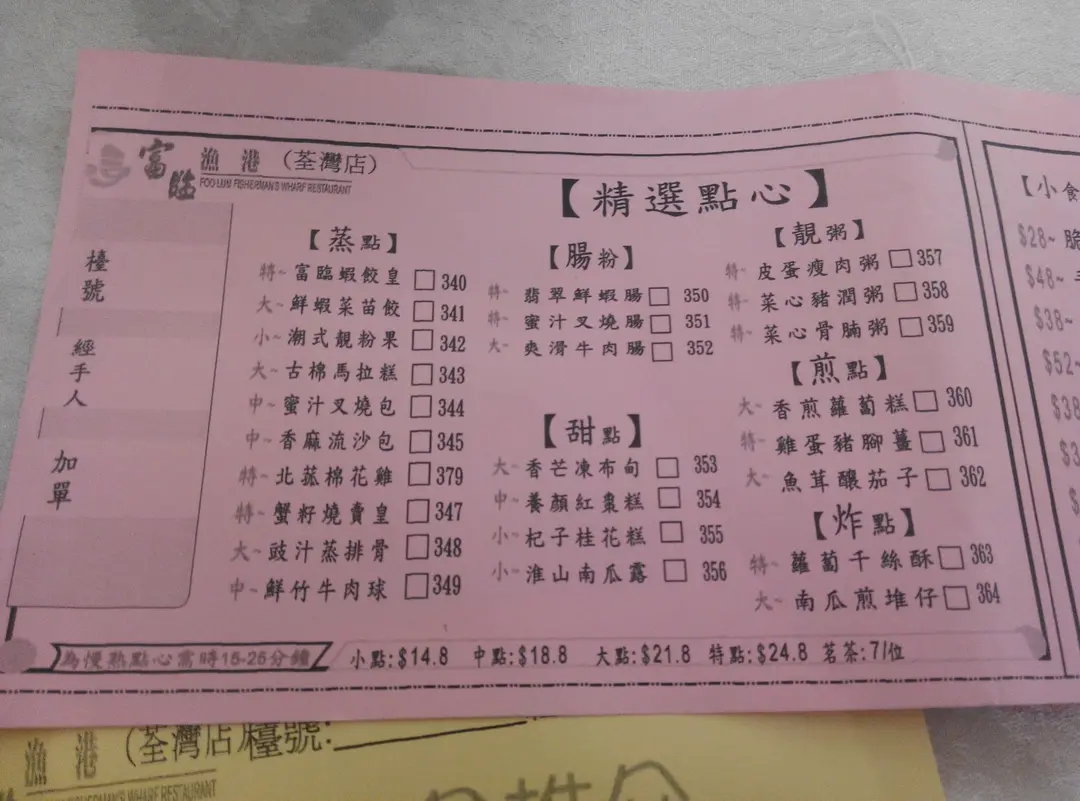 富臨 漁港 (荃灣店)
FOO LUM FISHERMAN'S WHARF RESTAURANT
檯號
經手人
加單
【精選點心】
【蒸點】
特~富臨蝦餃皇 □ 340
大~鮮蝦菜苗餃 □ 341
小~潮式靚粉果 □ 342
大~古棉馬拉糕 □ 343
中~蜜汁叉燒包 □ 344
中~香麻流沙包 □ 345
特~北菰棉花雞 □ 379
特~蟹籽燒賣皇 □ 347
大~豉汁蒸排骨 □ 348
中~鮮竹牛肉球 □ 349
【腸粉】
特~翡翠鮮蝦腸 □ 350
特~蜜汁叉燒腸 □ 351
大~爽滑牛肉腸 □ 352
【甜點】
大~香芒凍布甸 □ 353
中~養顏紅棗糕 □ 354
小~杞子桂花糕 □ 355
小~淮山南瓜露 □ 356
【靚粥】
特~皮蛋瘦肉粥 □ 357
特~菜心豬潤粥 □ 358
特~菜心骨腩粥 □ 359
【煎點】
大~香煎蘿蔔糕 □ 360
特~雞蛋豬腳薑 □ 361
大~魚茸釀茄子 □ 362
【炸點】
特~蘿蔔千絲酥 □ 363
大~南瓜煎堆仔 □ 364
為慢熟點心需時15-25分鐘
小點:$14.8 中點:$18.8 大點:$21.8 特點:$24.8 茗茶:7/位
【小食
$28~脆
$48~
$38~
$52~
$38
漁港 (荃灣店) 檯號:
FISHERMAN'S WHARF RESTAURANT